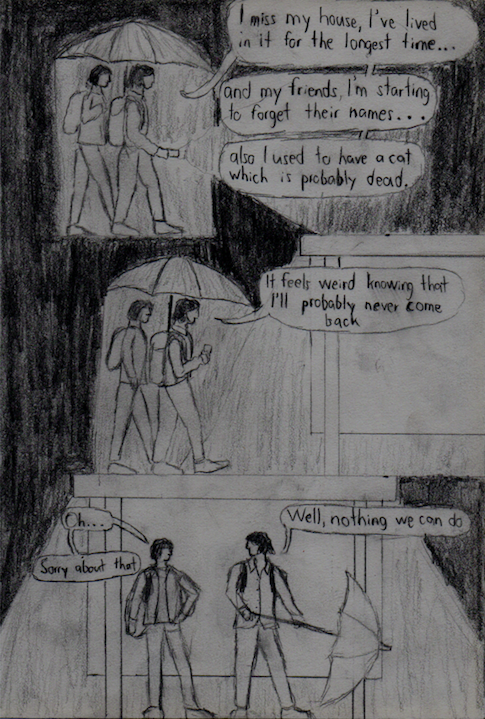 I miss my house, I've lived
in it for the longest time...
and my friends, I'm starting
to forget their names...
also I used to have a cat
which is probably dead.
It feels weird knowing that
I'll probably never come
back
Oh...
Sorry about that
Well, nothing we can do